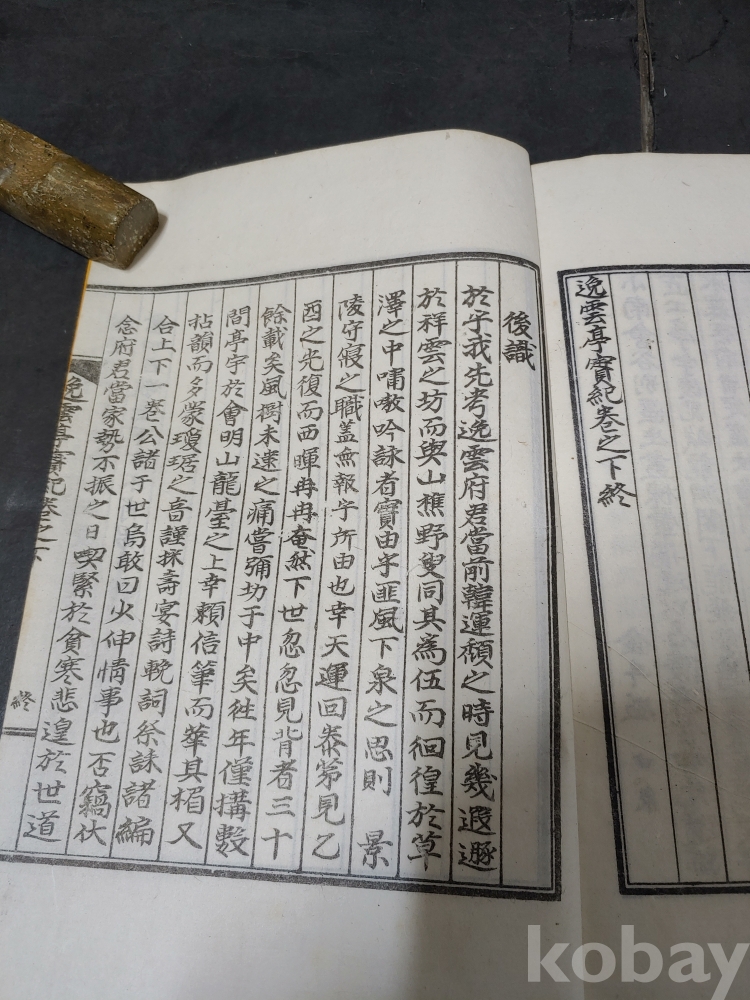 逸雲亭實紀卷之下終
後識
於乎我先考逸雲府君當前韓運頹之時見幾遐遯
於祥雲之坊而與山樵野叟同其為伍而徊徨於草
澤之中嘯嗷吟詠者實由乎匪風下泉之思則 景
陵守寢之職盖無報字所由也幸天運回泰第見乙
酉之光復而西暉冉冉奄然下世忽忽見背者三十
餘載矣風樹未逮之痛當彌切于中矣徃年僅搆數
間亭宇於會明山龍臺之上幸賴信筆而華其楣又
拈韻而多蒙瓊琚之音謹採壽宴詩輓詞祭誄諸編
合上下一卷公諸于世烏敢曰少伸情事也否竊伏
念府君當家勢不振之日喫緊於貧寒悲遑於世道
逸雲亭實紀卷之下
終
kobay